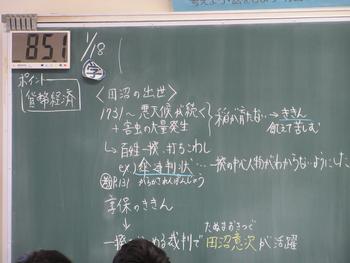 851
1/18
学
ポイント
貨幣経済
〈田沼の出世〉
1731～ 悪天候が続く
+ 害虫の大量発生
稲が育たない → ききん
飢えて苦しむ
↳ 百姓一揆・打ちこわし
ex) 傘連判状… 一揆の中心人物がわからないようにした
P.131
からかされんぱんじょう
享保のききん
↓
たぬまおきつぐ
裁判で 田沼意次が活躍